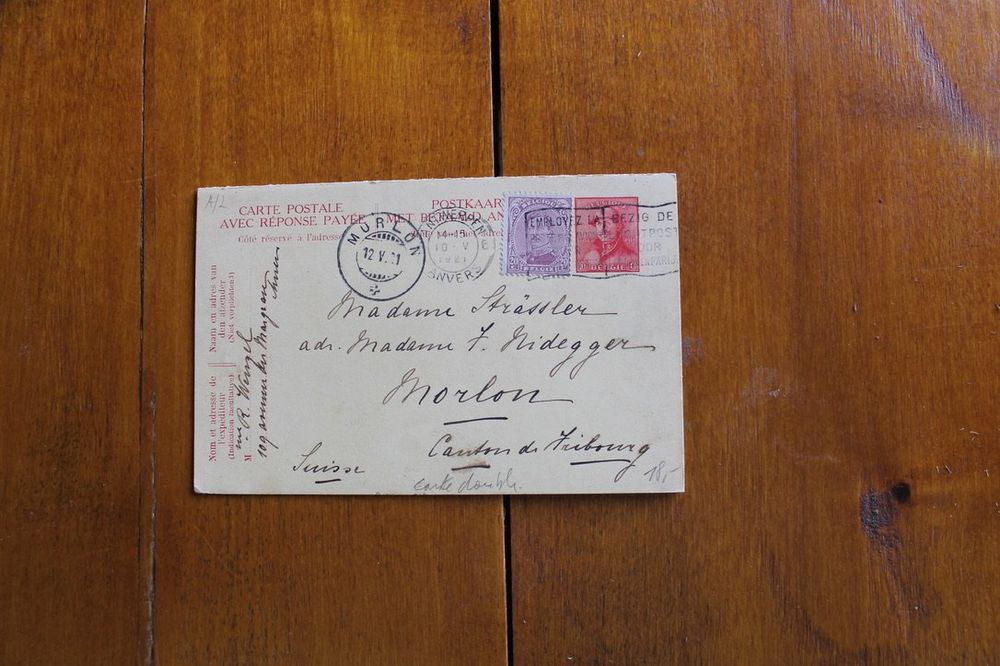 A/2
CARTE POSTALE
AVEC RÉPONSE PAYÉE
Côté réservé à l'adresse
POSTKAART
MET
MORLON
12 V. 21
14-15
10-V
1921
ANVERS
BELGIQUE
20
BELGIË
EMPLOYEZ LA
BEZIG DE
POST
Madame Strässler
adr. Madame F. Nidegger
Morlon
Canton de Fribourg
Suisse
carte double.
18,-
Naam en adres van
den afzender
(Niet verplichtend)
Nom et adresse de
l'expéditeur
(Indication facultative)
M
R. Wenzel
109 avenue des
Anvers